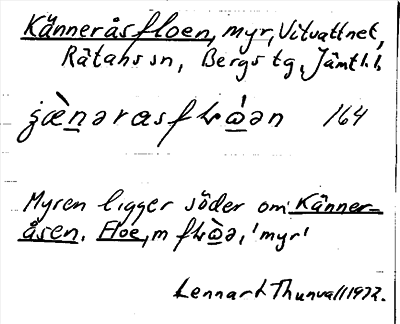 Känneråsfloen, myr, Vitvattnet,
Rätans sn, Bergs tg, Jämtl.l.
164
Myren ligger söder om Känner-
åsen. Floe, m , 'myr'
Lennart Thunvall 1972.